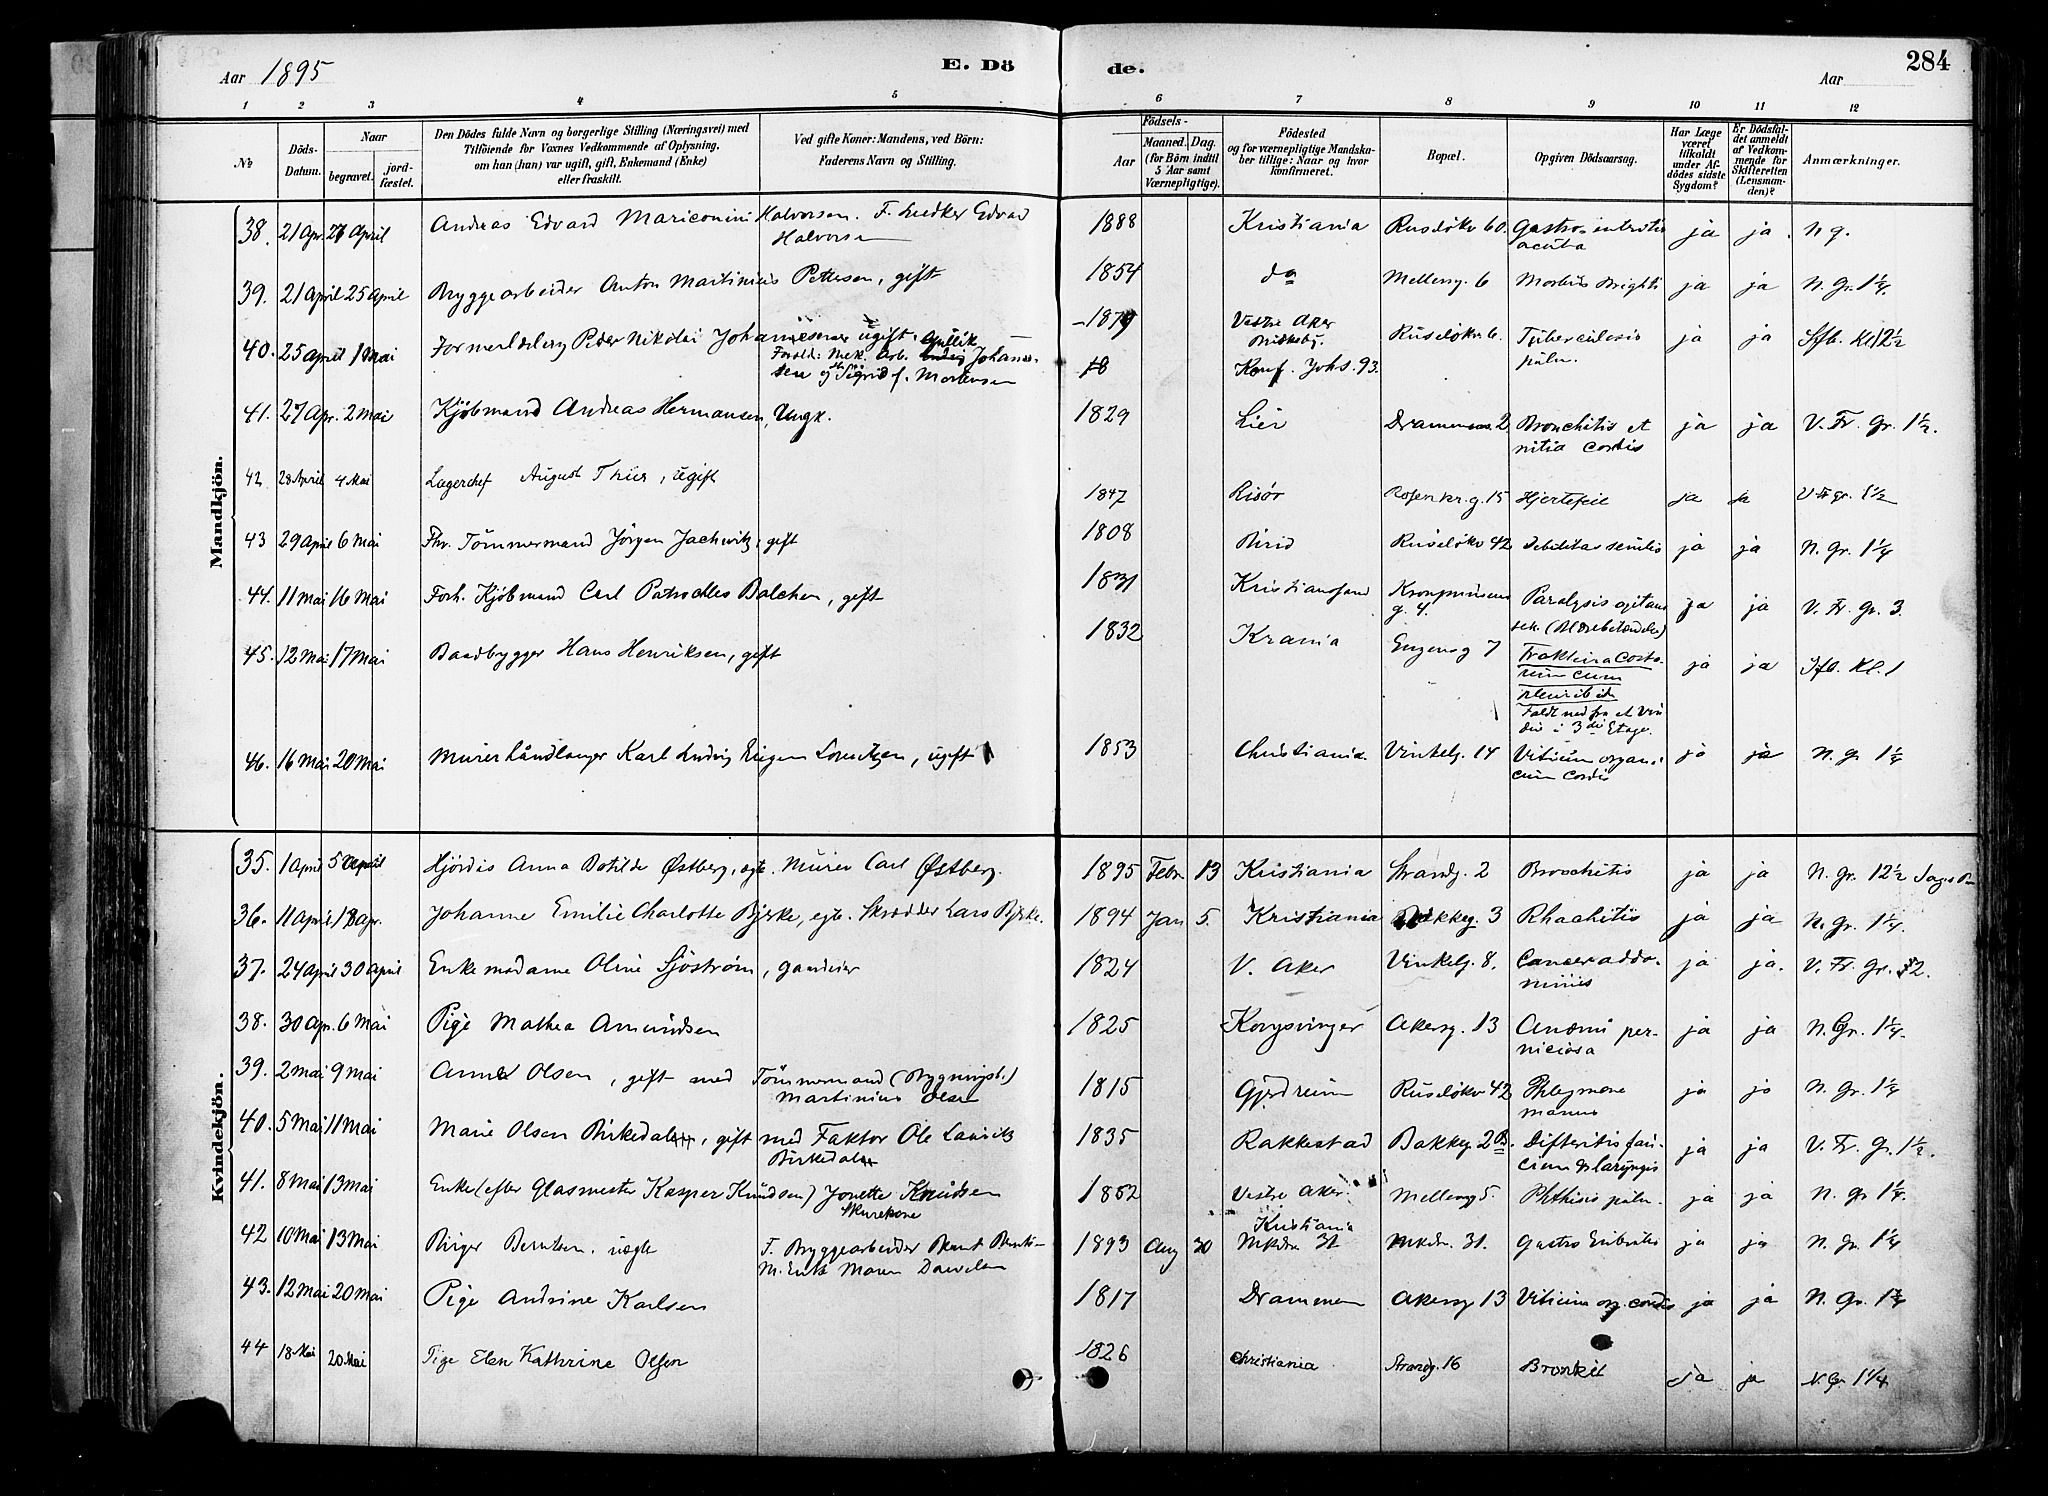 Aar 1895
E. Dö
de.
Aar
284
1 2 3 4 5 6 7 8 9 10 11 12
№
Döds-Datum.
Naar
begravet.
jord-fæstet.
Den Dödes fulde Navn og borgerlige Stilling (Næringsvei) med
Tilföiende for Voxnes Vedkommende af Oplysning,
om han (hun) var ugift, gift, Enkemand (Enke)
eller fraskilt.
Ved gifte Koner: Mandens, ved Börn:
Faderens Navn og Stilling.
Födsels-
Aar
Maaned. Dag.
(for Börn indtil
5 Aar samt
Værnepligtige).
Födested
og for værnepligtige Mandska-
ber tillige: Naar og hvor
konfirmeret.
Bopæl.
Opgiven Dödsaarsag.
Har Læge
været
tilkaldt
under Af-
dödes sidste
Sygdom?
Er Dödsfal-
det anmeldt
af Vedkom-
mende for
Skifteretten
(Lensman-
den)?
Anmærkninger.
Mandkjön.
38. 21 Apr. 27 April Andreas Edvard Halvorsen. F. Edvard 1888 Kristiania Ruselökv 60. Gastro enteritis ja ja. N g.
Halvorsen acuta
39. 21 April 25 April Bryggearbeider Anton Martinius Pettersen, gift 1854 do Mellemg. 6 Morbus Brighti ja ja N. Gr. 1¼.
40. 25 April 1 Mai Peder Nikolai Johannesen ugift. Gullik Vestre Aker Ruselökv. 6. Tuberculosis ja ja Sfb. Kl 12½
Foræld: Mek. Arb. Johannes- Briskeby. pulm.
sen og Sigrid f. Mortensen 18 Konf. Johs. 93.
41. 27 Apr. 2 Mai Kjöbmand Andreas Hermansen, Ungk. 1829 Lier 2 Bronchitis et ja ja V. Fr. Gr. 1½.
cordis
42 28 April 4 Mai Lagerchef August Thiis, ugift 1847 Risör Rosenkr.g. 15 Hjertefeil ja ja V Fr gr. 1½
43 29 April 6 Mai Fhv. Tömmermand Jörgen gift 1808 Birid Ruselökv 42 Debilitas senilis ja ja N. Gr. 1¼
44. 11 Mai 16 Mai Forh. Kjöbmand Carl Balchen, gift 1831 Kristianssand Kronprinsens Paralysis agitans ja ja V. Fr. Gr. 3.
g. 4. (Blærebetændelse)
45. 12 Mai 17 Mai Baadbygger Hans Henriksen, gift 1832 Krania Engens g 7 Fraktura costa- ja ja Sfb. Kl. 1
rum cum
Faldt ned fra et Vin
due i 3die Etage.
46. 16 Mai 20 Mai Murerhåndlanger Karl Ludvig Eugen Lorentzen, ugift 1853 Christiania. Vinkelg. 14 Vitium organi- ja ja N. gr 1¼
cum cordis
Kvindekjön.
35. 1 April 5 April Hjördis Anna Botilde Østberg, egte. Murer Carl Østberg. 1895 Febr. 13 Kristiania Strandg. 2 Bronchitis ja ja N. Gr. 12½
36. 11 April 18 Apr. Johanne Emilie Charlotte Bjerke, egte. Skrædder Lars Bjerke. 1894 Jan 5. Kristiania Bakkeg. 3 Rhachitis ja ja N. Gr. 1¼.
37. 24 April 30 April Enkemadame Oline Sjöström, 1824 V. Aker Vinkelg. 8. Cancer abdo- ja ja. V. Fr. Gr. 2.
minis
38. 30 Apr. 6 Mai Pige Mathea Amundsen 1825 Kongsvinger Akersg. 13 Anæmi per- ja ja N. Gr. 1¼.
niciosa
39. 2 Mai 9 Mai Anne Olsen, gift med Tömmermand 1815 Gjerdrum Ruselökv 42 Phlegmone ja ja N. Gr. 1¼
Martinius Olsen manus
40. 5 Mai 11 Mai Marie Olsen Birkedal, gift med Faktor Ole Lauritz 1835 Rakkestad Bakkeg 2B. Difteritis fau- ja ja V. Fr. Gr. 1½.
Birkedal cium & laryngis
41. 8 Mai 13 Mai Enke (efter Glasmester Kasper Knudsen) Jonette Knudsen 1852 Vestre Aker. Mellemg 5. Phthisis pulm. ja ja N. gr 1¼.
Skurekone
42 10 Mai 13 Mai Birger Berntsen. uægte F. Bryggearbeider Bernt Bernt- 1893 Aug 30 Kristiania Mkdm. 31. Gastro Enteritis ja ja N. Gr. 1¼
M. Enke Maren Mkdm 31
43. 12 Mai 20 Mai Pige Andrine Karlsen 1817 Drammen Akersg 13 Vitium org. cordis ja ja N. Gr. 1¼
44 18 Mai 20 Mai Pige Elen Kathrine Olsen 1826 Christiania Strandg. 16 Bronkit ja ja N. Gr 1¼